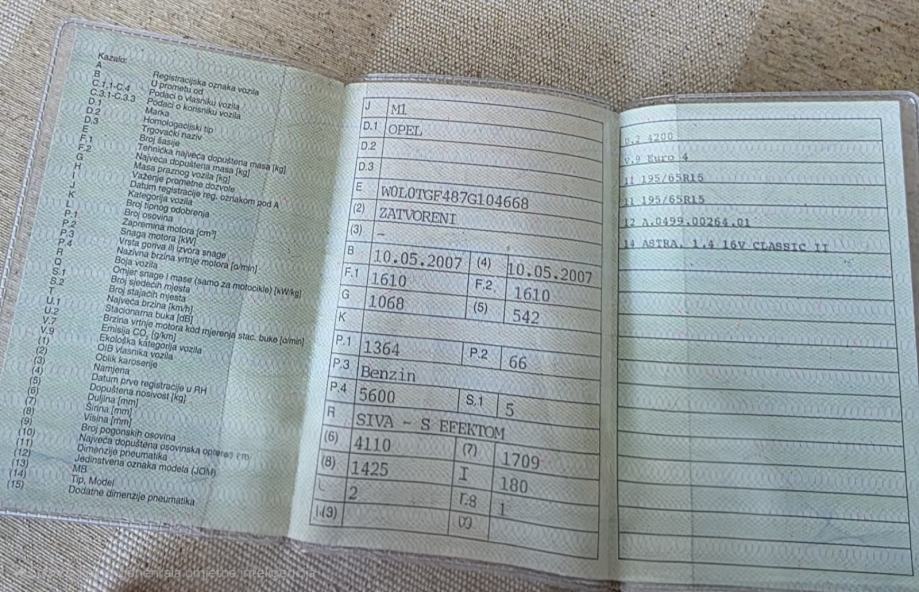 Kazalo:
A Registracijska oznaka vozila
B U prometu od
C.1.1-C.4 Podaci o vlasniku vozila
C.3.1-C.3.3 Podaci o korisniku vozila
D.1 Marka
D.2 Homologacijski tip
D.3 Trgovački naziv
E Broj šasije
F.1 Tehnička najveća dopuštena masa [kg]
F.2 Najveća dopuštena masa [kg]
G Masa praznog vozila [kg]
H Važenje prometne dozvole
I Datum registracije reg. oznakom pod A
J Kategorija vozila
K Broj tipnog odobrenja
L Broj osovina
P.1 Zapremina motora [cm³]
P.2 Snaga motora [kW]
P.3 Vrsta goriva ili izvora snage
P.4 Nazivna brzina vrtnje motora [o/min]
R Boja vozila
Q Omjer snage i mase (samo za motocikle) [kW/kg]
S.1 Broj sjedećih mjesta
S.2 Broj stajaćih mjesta
T Najveća brzina [km/h]
U.1 Stacionarna buka [dB]
U.2 Brzina vrtnje motora kod mjerenja stac. buke [o/min]
V.7 Emisija CO₂ [g/km]
V.9 Ekološka kategorija vozila
(1) OIB vlasnika vozila
(2) Oblik karoserije
(3) Namjena
(4) Datum prve registracije u RH
(5) Dopuštena nosivost [kg]
(6) Duljina [mm]
(7) Širina [mm]
(8) Visina [mm]
(9) Broj pogonskih osovina
(10) Najveća dopuštena osovinska
(11) Dimenzije pneumatika
(12) Jedinstvena oznaka modela (JOM)
(13) MB
(14) Tip, Model
(15) Dodatne dimenzije pneumatika
J M1
D.1 OPEL
D.2
D.3
E W0L0TGF487G104668
(2) ZATVORENI
(3) –
B 10.05.2007 (4) 10.05.2007
F.1 1610 F.2 1610
G 1068 (5) 542
K
P.1 1364 P.2 66
P.3 Benzin
P.4 5600 S.1 5
R SIVA - S EFEKTOM
(6) 4110 (7) 1709
(8) 1425 T 180
L 2 1
4200
V.9 Euro 4
11 195/65R15
11 195/65R15
12 A.0499.00264.01
14 ASTRA, 1.4 16V CLASSIC II